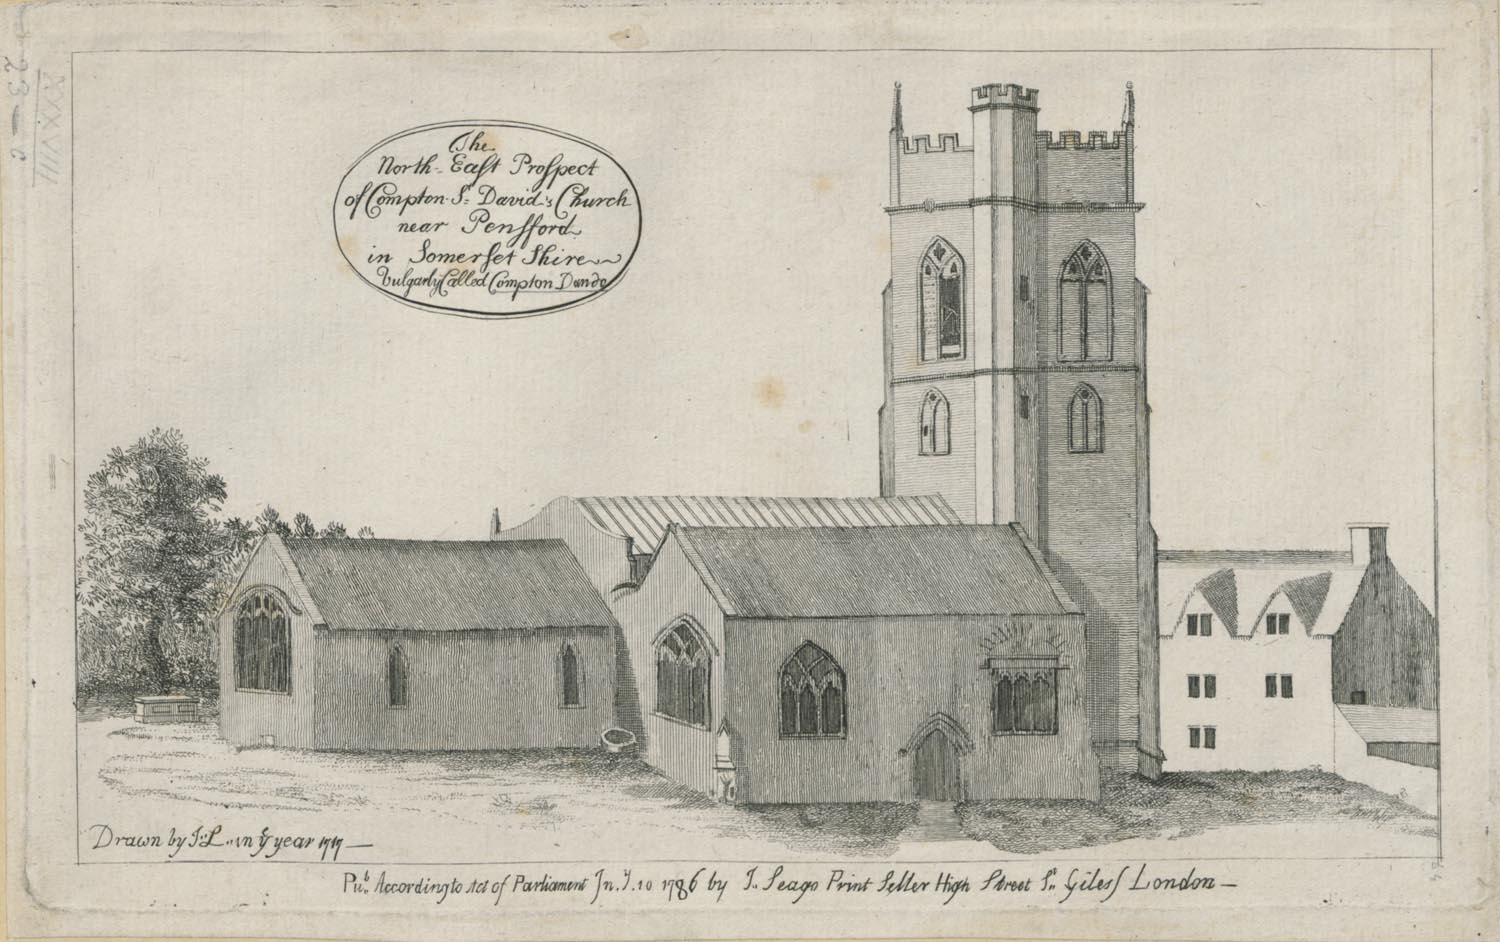 The
North-East Prospect
of Compton St David's Church
near Pensford
in Somerset Shire
Vulgarly Called Compton Dando
Drawn by J: L.. in ye year 1717
Pub. According to Act of Parliament Jny. 10 1786 by J. Seago Print Seller High Street St. Giles's London
XXXVIII
23-c